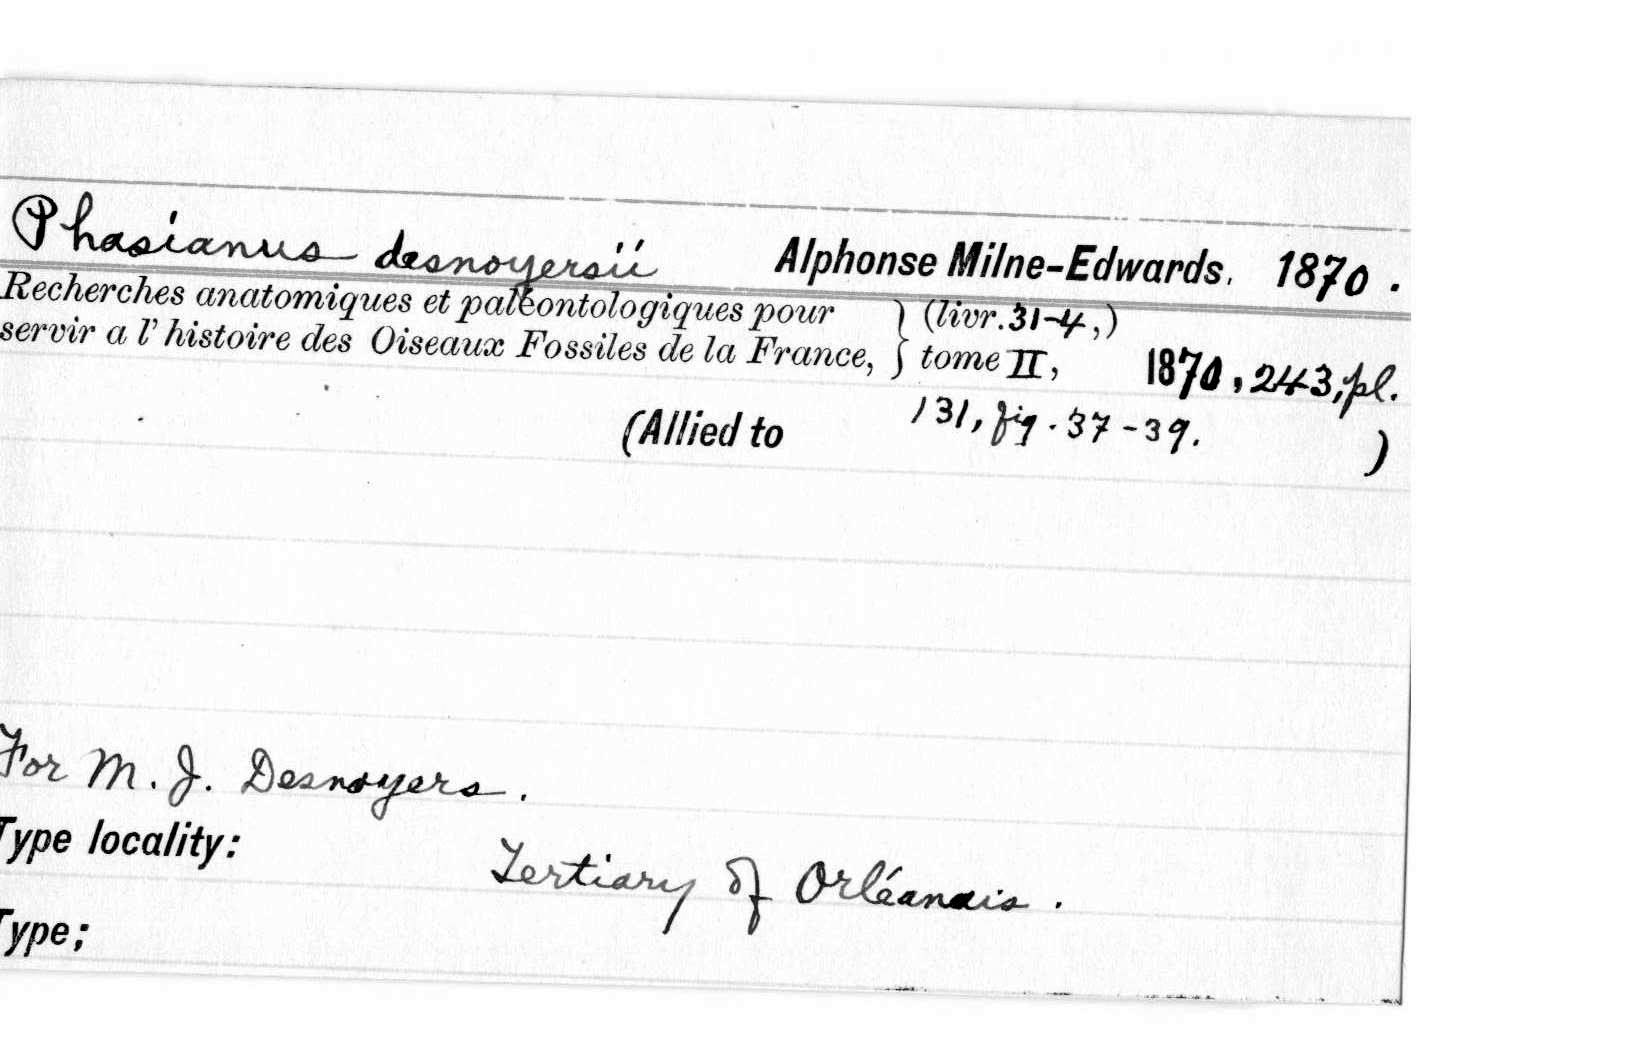 Phasianus desnoyersii Alphonse Milne-Edwards, 1870.
Recherches anatomiques et paléontologiques pour } (livr. 31-4,)
servir a l' histoire des Oiseaux Fossiles de la France, } tome II, 1870, 243, pl.
131, fig. 37-39.
(Allied to )
For M. J. Desnoyers.
Type locality:
Tertiary of Orléanais.
Type;